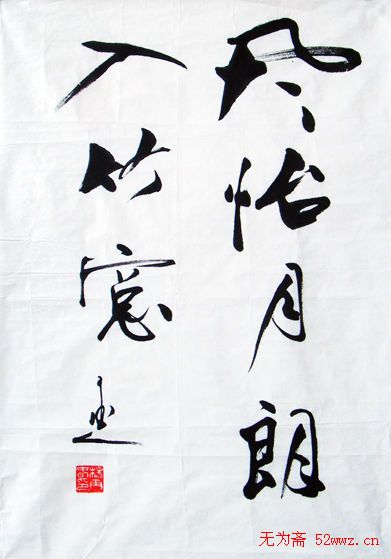 风怡月朗
入竹窓
无为斋 52wwz.cn